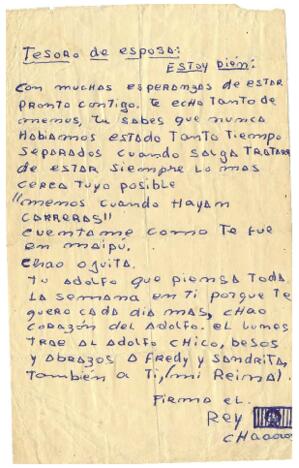 Tesoro de esposa:
Estoy bién:
Con muchas esperanzas de estar
pronto contigo. Te echo tanto de
menos, tu sabes que nunca
habiamos estado tanto tiempo
separados cuando salga tratare
de estar siempre lo mas
cerca tuyo posible
"menos cuando hayan
carreras"
Cuentame como te fue
en maipú.
Chao oguita.
Tu Adolfo que piensa toda
la semana en ti porque te
quero cada dia mas, chao
corazón del Adolfo. el lunes
trae al Adolfo chico, besos
y abrazos a Fredy y Sandrita,
también a Ti, (mi Reina).
Firma el
Rey
chaaao